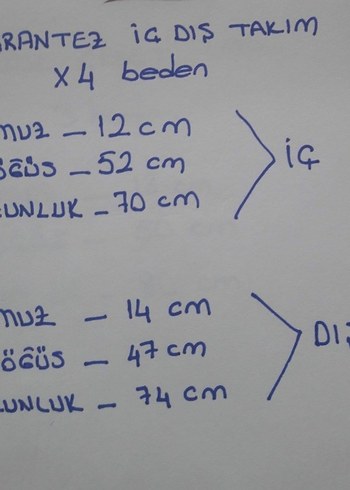 RANTEZ İÇ DIŞ TAKIM
X4 beden
MUZ - 12 cm
ÖĞÜS - 52 cm
İÇ
UNLUK - 70 cm
MUZ - 14 cm
ÖĞÜS - 47 cm
DIŞ
UNLUK - 74 cm